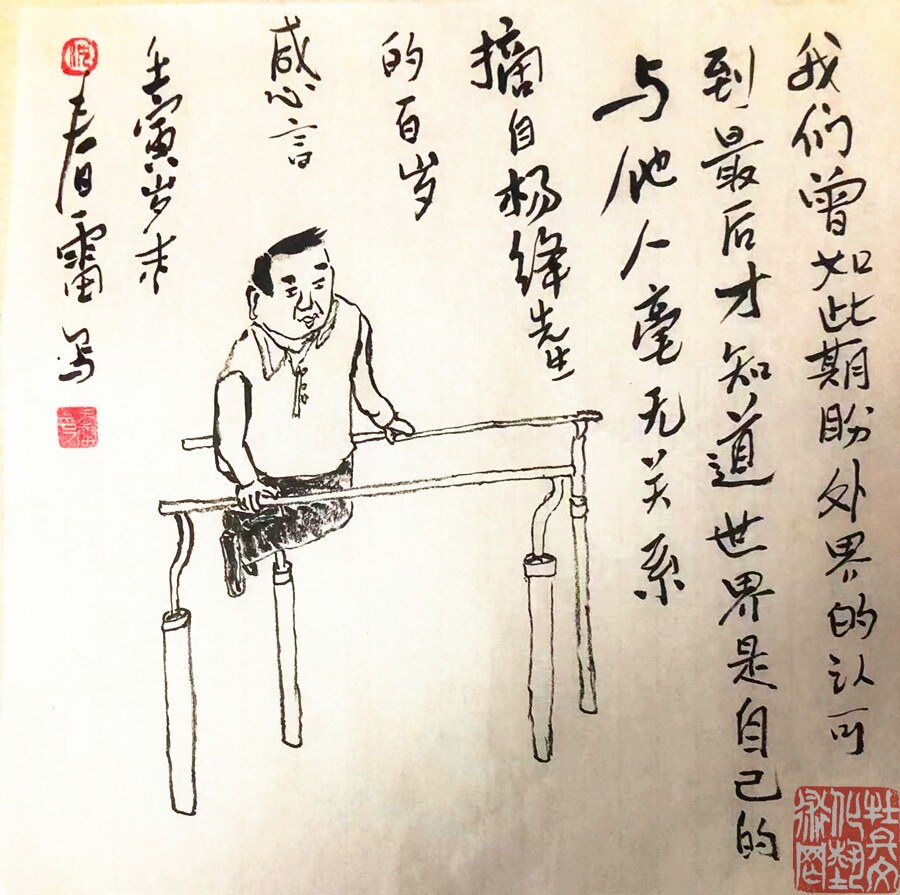 我们曾如此期盼外界的认可
到最后才知道世界是自己的
与他人毫无关系
摘自杨绛先生
的百岁
感言
壬寅岁末
春雷写